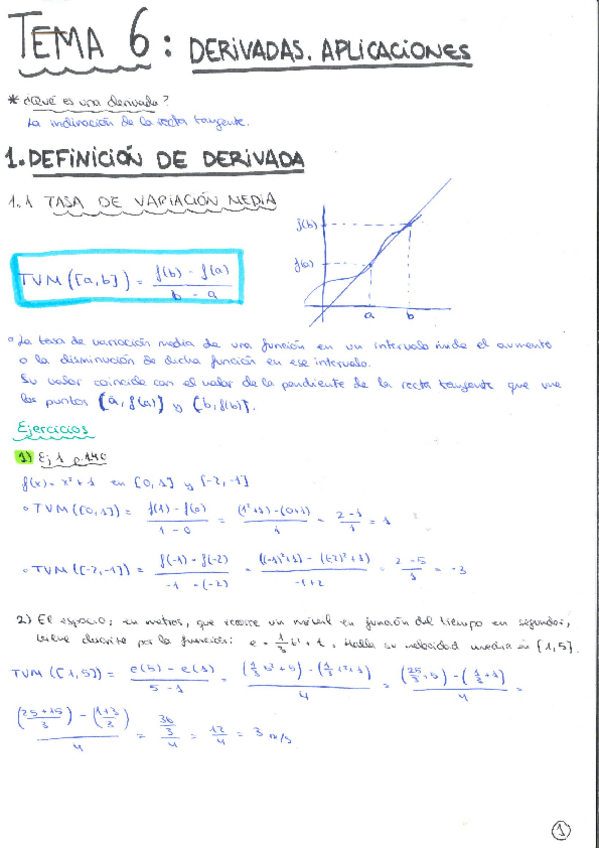 TEMA 6: DERIVADAS. APLICACIONES
* ¿Qué es una derivada?
La inclinación de la recta tangente.
1. DEFINICIÓN DE DERIVADA
1.1 TASA DE VARIACIÓN MEDIA
f(b)
f(a)
a b
TVM([a,b]) = (f(b) - f(a)) / (b - a)
◦ La tasa de variación media de una función en un intervalo mide el aumento
o la disminución de dicha función en ese intervalo.
Su valor coincide con el valor de la pendiente de la recta tangente que une
los puntos (a, f(a)) y (b, f(b)).
Ejercicios
1) Ej 1 p 140
f(x) = x² + 1 en [0, 1] y [-2, -1]
◦ TVM([0,1]) = (f(1) - f(0)) / (1 - 0) = ((1²+1) - (0+1)) / 1 = (2 - 1) / 1 = 1
◦ TVM([-2,-1]) = (f(-1) - f(-2)) / (-1 - (-2)) = ((-1)²+1) - ((-2)²+1) / (-1+2) = (2 - 5) / 1 = -3
2) El espacio, en metros, que recorre un móvil en función del tiempo en segundos,
viene descrito por la función: e = 1/3 t² + t. Halla su velocidad media en [1,5].
TVM([1,5]) = (e(5) - e(1)) / (5 - 1) = ((1/3 5² + 5) - (1/3 1² + 1)) / 4 = ((25/3 + 5) - (1/3 + 1)) / 4 =
((25+15)/3) - ((1+3)/3) / 4 = (36/3) / 4 = 12/4 = 3 m/s
1